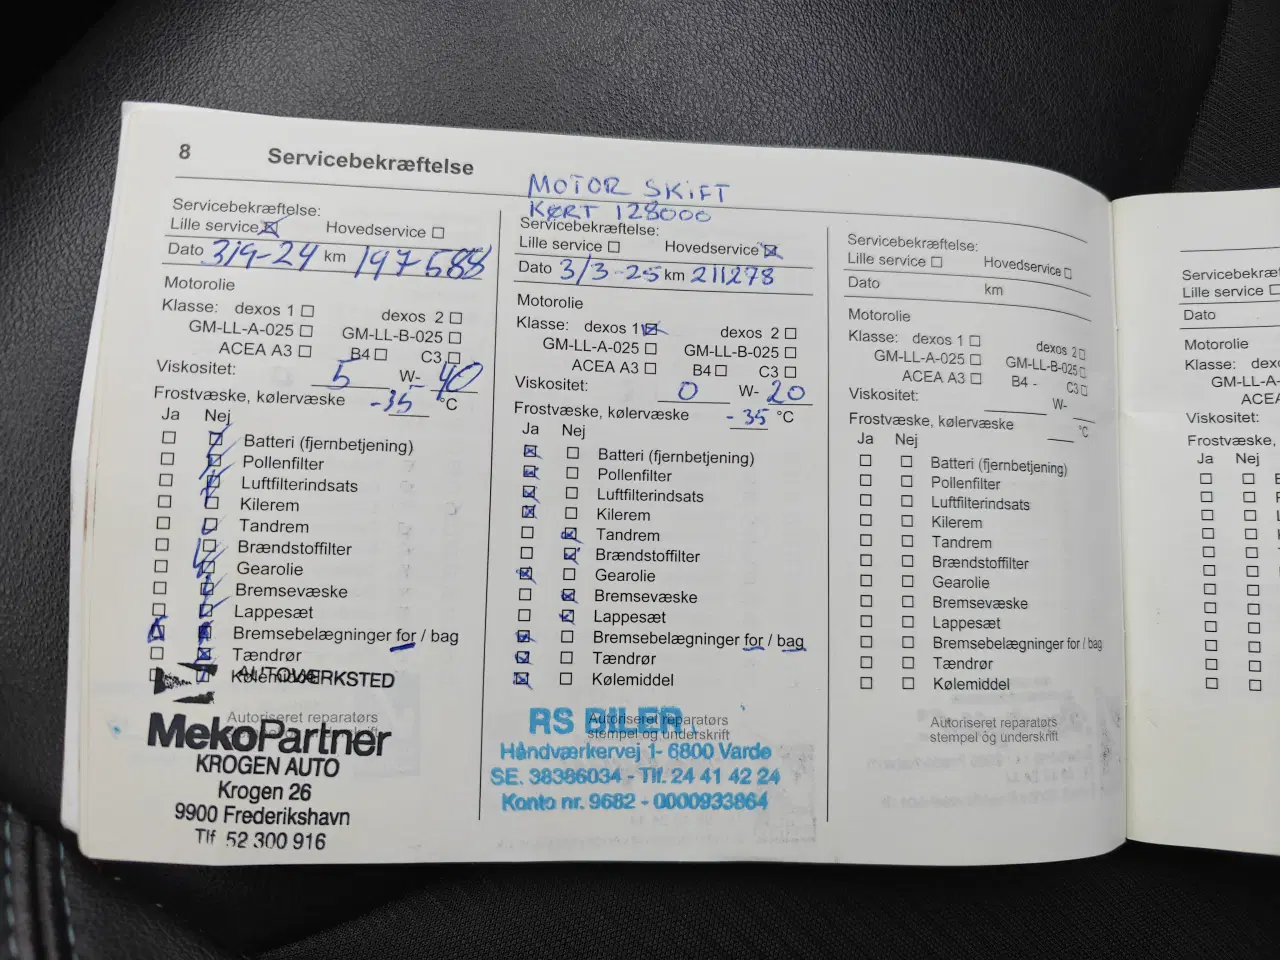 8 Servicebekræftelse
Servicebekræftelse:
Lille service Hovedservice
Dato 3/9-24 km 197588
Motorolie
Klasse: dexos 1 dexos 2
GM-LL-A-025 GM-LL-B-025
ACEA A3 B4 C3
Viskositet: 5 W- 40
Frostvæske, kølervæske -35 °C
Ja Nej
Batteri (fjernbetjening)
Pollenfilter
Luftfilterindsats
Kilerem
Tandrem
Brændstoffilter
Gearolie
Bremsevæske
Lappesæt
Bremsebelægninger for / bag
Tændrør
Kølemiddel
AUTOVERKSTED
Autoriseret reparatørs
stempel og underskrift
MekoPartner
KROGEN AUTO
Krogen 26
9900 Frederikshavn
Tlf 52 300 916
MOTOR SKIFT
KØRT 128000
Servicebekræftelse:
Lille service Hovedservice
Dato 3/3-25 km 211278
Motorolie
Klasse: dexos 1 dexos 2
GM-LL-A-025 GM-LL-B-025
ACEA A3 B4 C3
Viskositet: 0 W- 20
Frostvæske, kølervæske -35 °C
Ja Nej
Batteri (fjernbetjening)
Pollenfilter
Luftfilterindsats
Kilerem
Tandrem
Brændstoffilter
Gearolie
Bremsevæske
Lappesæt
Bremsebelægninger for / bag
Tændrør
Kølemiddel
Autoriseret reparatørs
stempel og underskrift
RS BILER
Håndværkervej 1- 6800 Varde
SE. 38386034 - Tlf. 24 41 42 24
Konto nr. 9682 - 0000933864
Servicebekræftelse:
Lille service Hovedservice
Dato km
Motorolie
Klasse: dexos 1 dexos 2
GM-LL-A-025 GM-LL-B-025
ACEA A3 B4 - C3
Viskositet: W-
Frostvæske, kølervæske °C
Ja Nej
Batteri (fjernbetjening)
Pollenfilter
Luftfilterindsats
Kilerem
Tandrem
Brændstoffilter
Gearolie
Bremsevæske
Lappesæt
Bremsebelægninger for / bag
Tændrør
Kølemiddel
Autoriseret reparatørs
stempel og underskrift
Lille service
Dato
Motorolie
Klasse: dexos
Viskositet:
Frostvæske,
Ja Nej